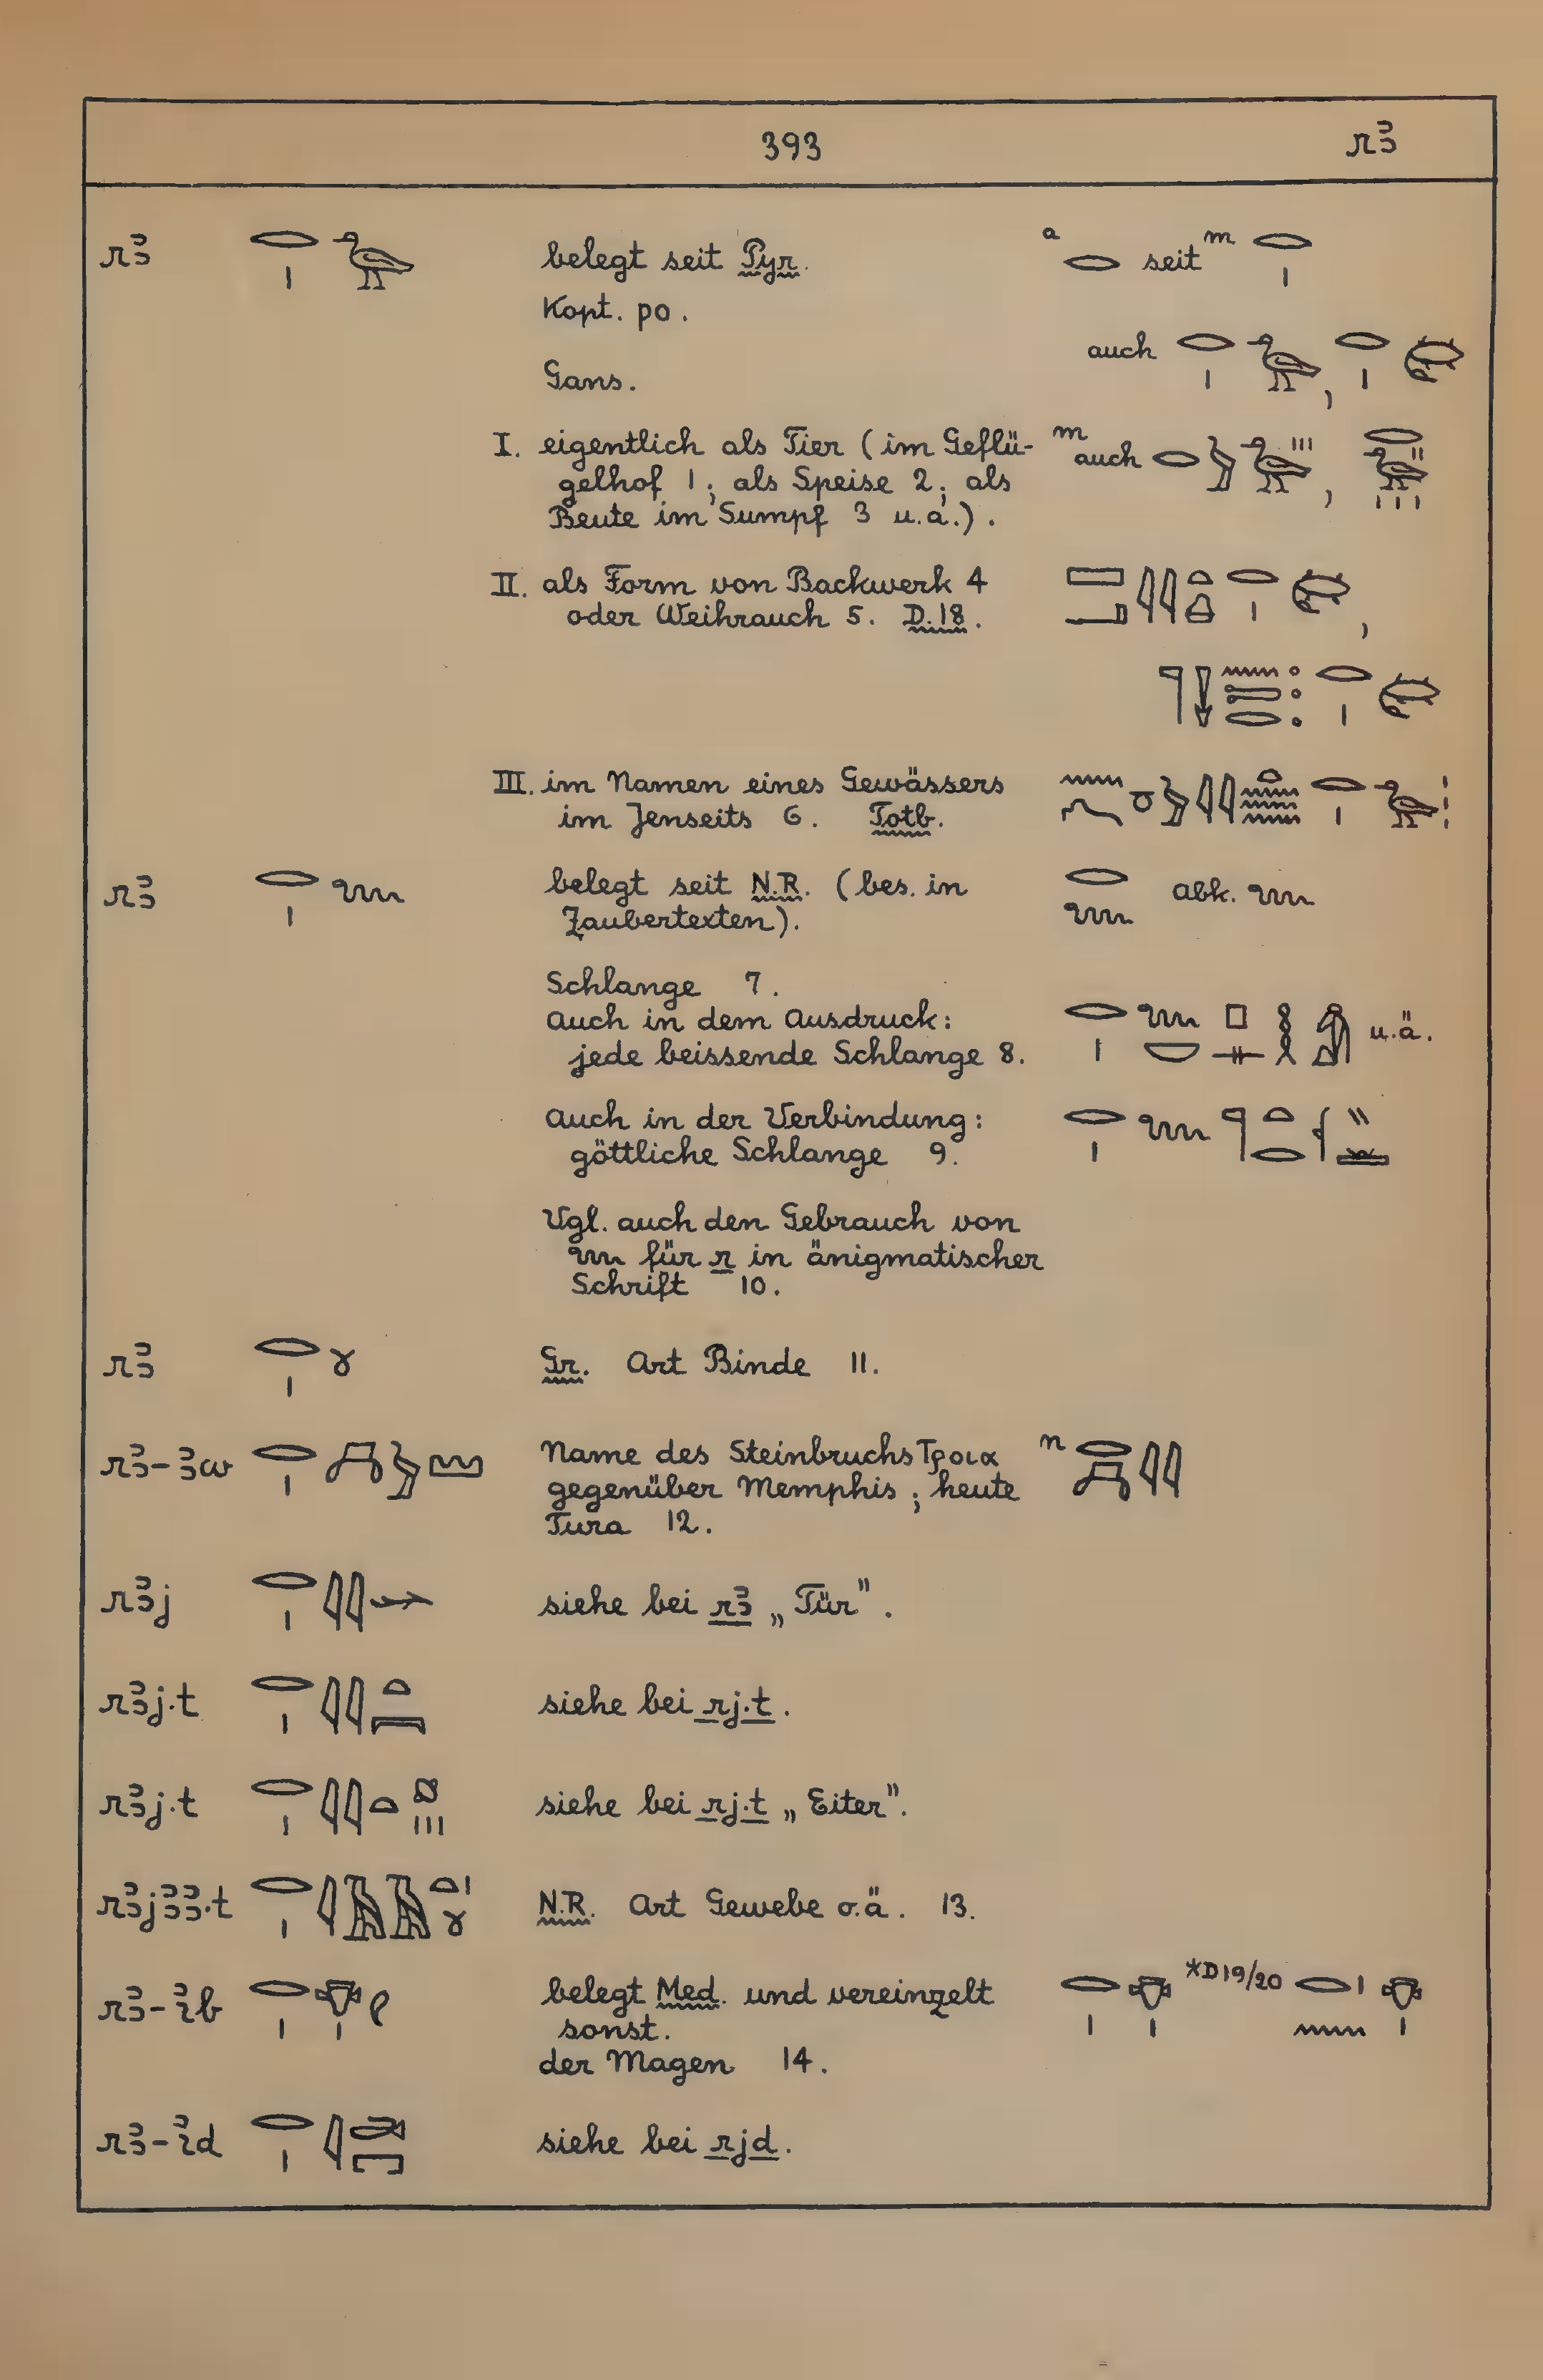 393 rꜣ
rꜣ 𓂋𓏤𓅬 belegt seit Pyr. a 𓂋 seit m 𓂋𓏤
Kopt. ⲣⲟ.
auch 𓂋𓏤𓅬, 𓂋𓏤
Gans.
I. eigentlich als Tier (im Geflü- m
auch 𓂋𓅱𓅬𓏥,
gelhof 1; als Speise 2; als
Beute im Sumpf 3 u.a.).
II. als Form von Backwerk 4
oder Weihrauch 5. D.18.
III. im Namen eines Gewässers
im Jenseits 6. Totb.
rꜣ 𓂋𓏤𓆙 belegt seit N.R. (bes. in 𓂋𓆙 abk. 𓆙
Zaubertexten).
Schlange 7.
auch in dem Ausdruck: 𓂋𓏤𓆙𓎟𓊪𓊃𓎛 u.ä.
jede beissende Schlange 8.
auch in der Verbindung:
göttliche Schlange 9.
Vgl. auch den Gebrauch von
𓆙 für r in änigmatischer
Schrift 10.
rꜣ 𓂋𓏤𓍢 Gr. Art Binde 11.
rꜣ-ꜣw Name des Steinbruchs Τροια n
gegenüber Memphis; heute
Tura 12.
rꜣj 𓂋𓏤𓇌𓆱 siehe bei rꜣ „Tür".
rꜣj.t 𓂋𓏤𓇌𓏏𓇯 siehe bei rj.t.
rꜣj.t 𓂋𓏤𓇌𓏏𓐎𓏥 siehe bei rj.t „Eiter".
rꜣjꜣꜣ.t N.R. Art Gewebe o.ä. 13.
rꜣ-ꞽb 𓂋𓏤𓄣𓏤𓄹 belegt Med. und vereinzelt 𓂋𓏤𓄣𓏤 *D19/20 𓂋𓏤𓈖𓄣𓏤
sonst.
der Magen 14.
rꜣ-ꞽd siehe bei rjd.